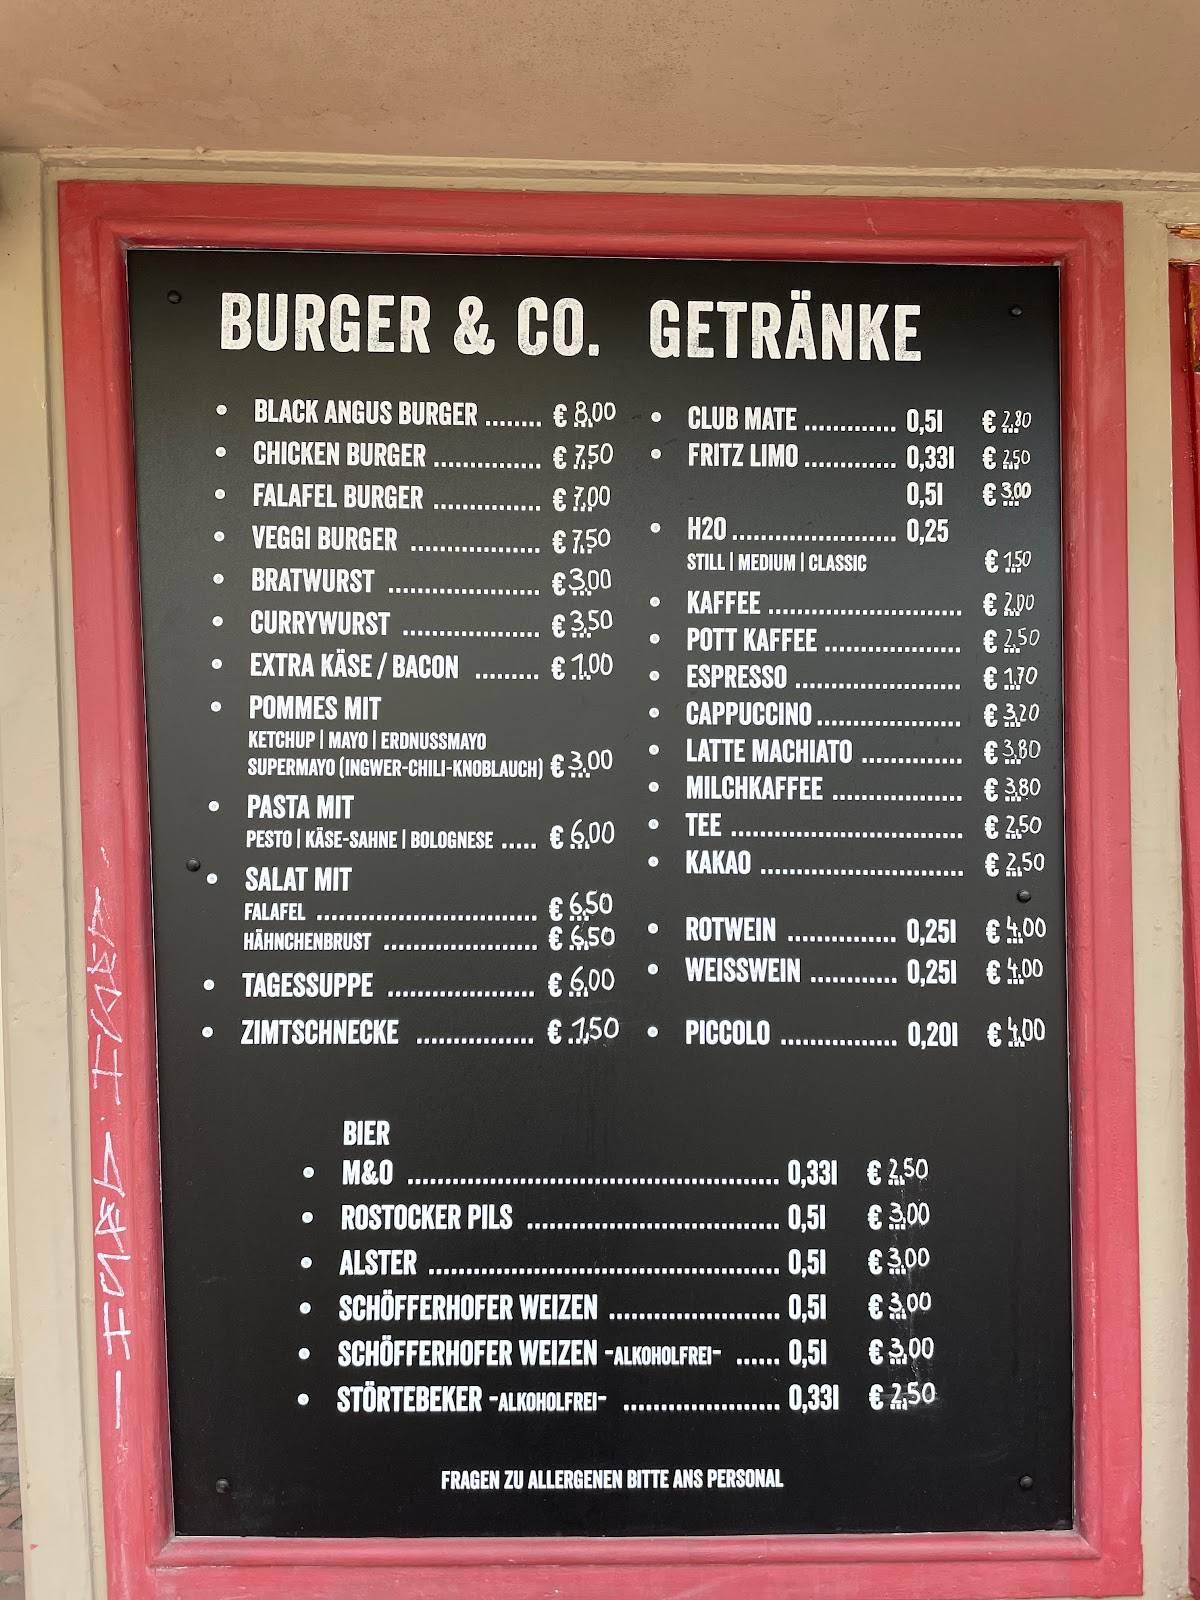 BURGER & CO.
BLACK ANGUS BURGER ........ € 8,00
CHICKEN BURGER ............... € 7,50
FALAFEL BURGER ............... € 7,00
VEGGI BURGER .................. € 7,50
BRATWURST ..................... € 3,00
CURRYWURST ................... € 3,50
EXTRA KÄSE / BACON ......... € 1,00
POMMES MIT
KETCHUP | MAYO | ERDNUSSMAYO
SUPERMAYO (INGWER-CHILI-KNOBLAUCH) € 3,00
PASTA MIT
PESTO | KÄSE-SAHNE | BOLOGNESE ..... € 6,00
SALAT MIT
FALAFEL ................................ € 6,50
HÄHNCHENBRUST ...................... € 6,50
TAGESSUPPE ..................... € 6,00
ZIMTSCHNECKE ................. € 1,50
GETRÄNKE
CLUB MATE ............. 0,5l € 2,80
FRITZ LIMO ............. 0,33l € 2,50
0,5l € 3,00
H2O ....................... 0,25
STILL | MEDIUM | CLASSIC € 1,50
KAFFEE ........................... € 2,00
POTT KAFFEE ................... € 2,50
ESPRESSO ....................... € 1,70
CAPPUCCINO .................... € 3,20
LATTE MACHIATO .............. € 3,80
MILCHKAFFEE .................. € 3,80
TEE ................................ € 2,50
KAKAO ............................ € 2,50
ROTWEIN ............... 0,25l € 4,00
WEISSWEIN ............ 0,25l € 4,00
PICCOLO ................ 0,20l € 4,00
BIER
M&O .................................................... 0,33l € 2,50
ROSTOCKER PILS ................................... 0,5l € 3,00
ALSTER ................................................. 0,5l € 3,00
SCHÖFFERHOFER WEIZEN ........................ 0,5l € 3,00
SCHÖFFERHOFER WEIZEN -ALKOHOLFREI- ...... 0,5l € 3,00
STÖRTEBEKER -ALKOHOLFREI- ...................... 0,33l € 2,50
FRAGEN ZU ALLERGENEN BITTE ANS PERSONAL